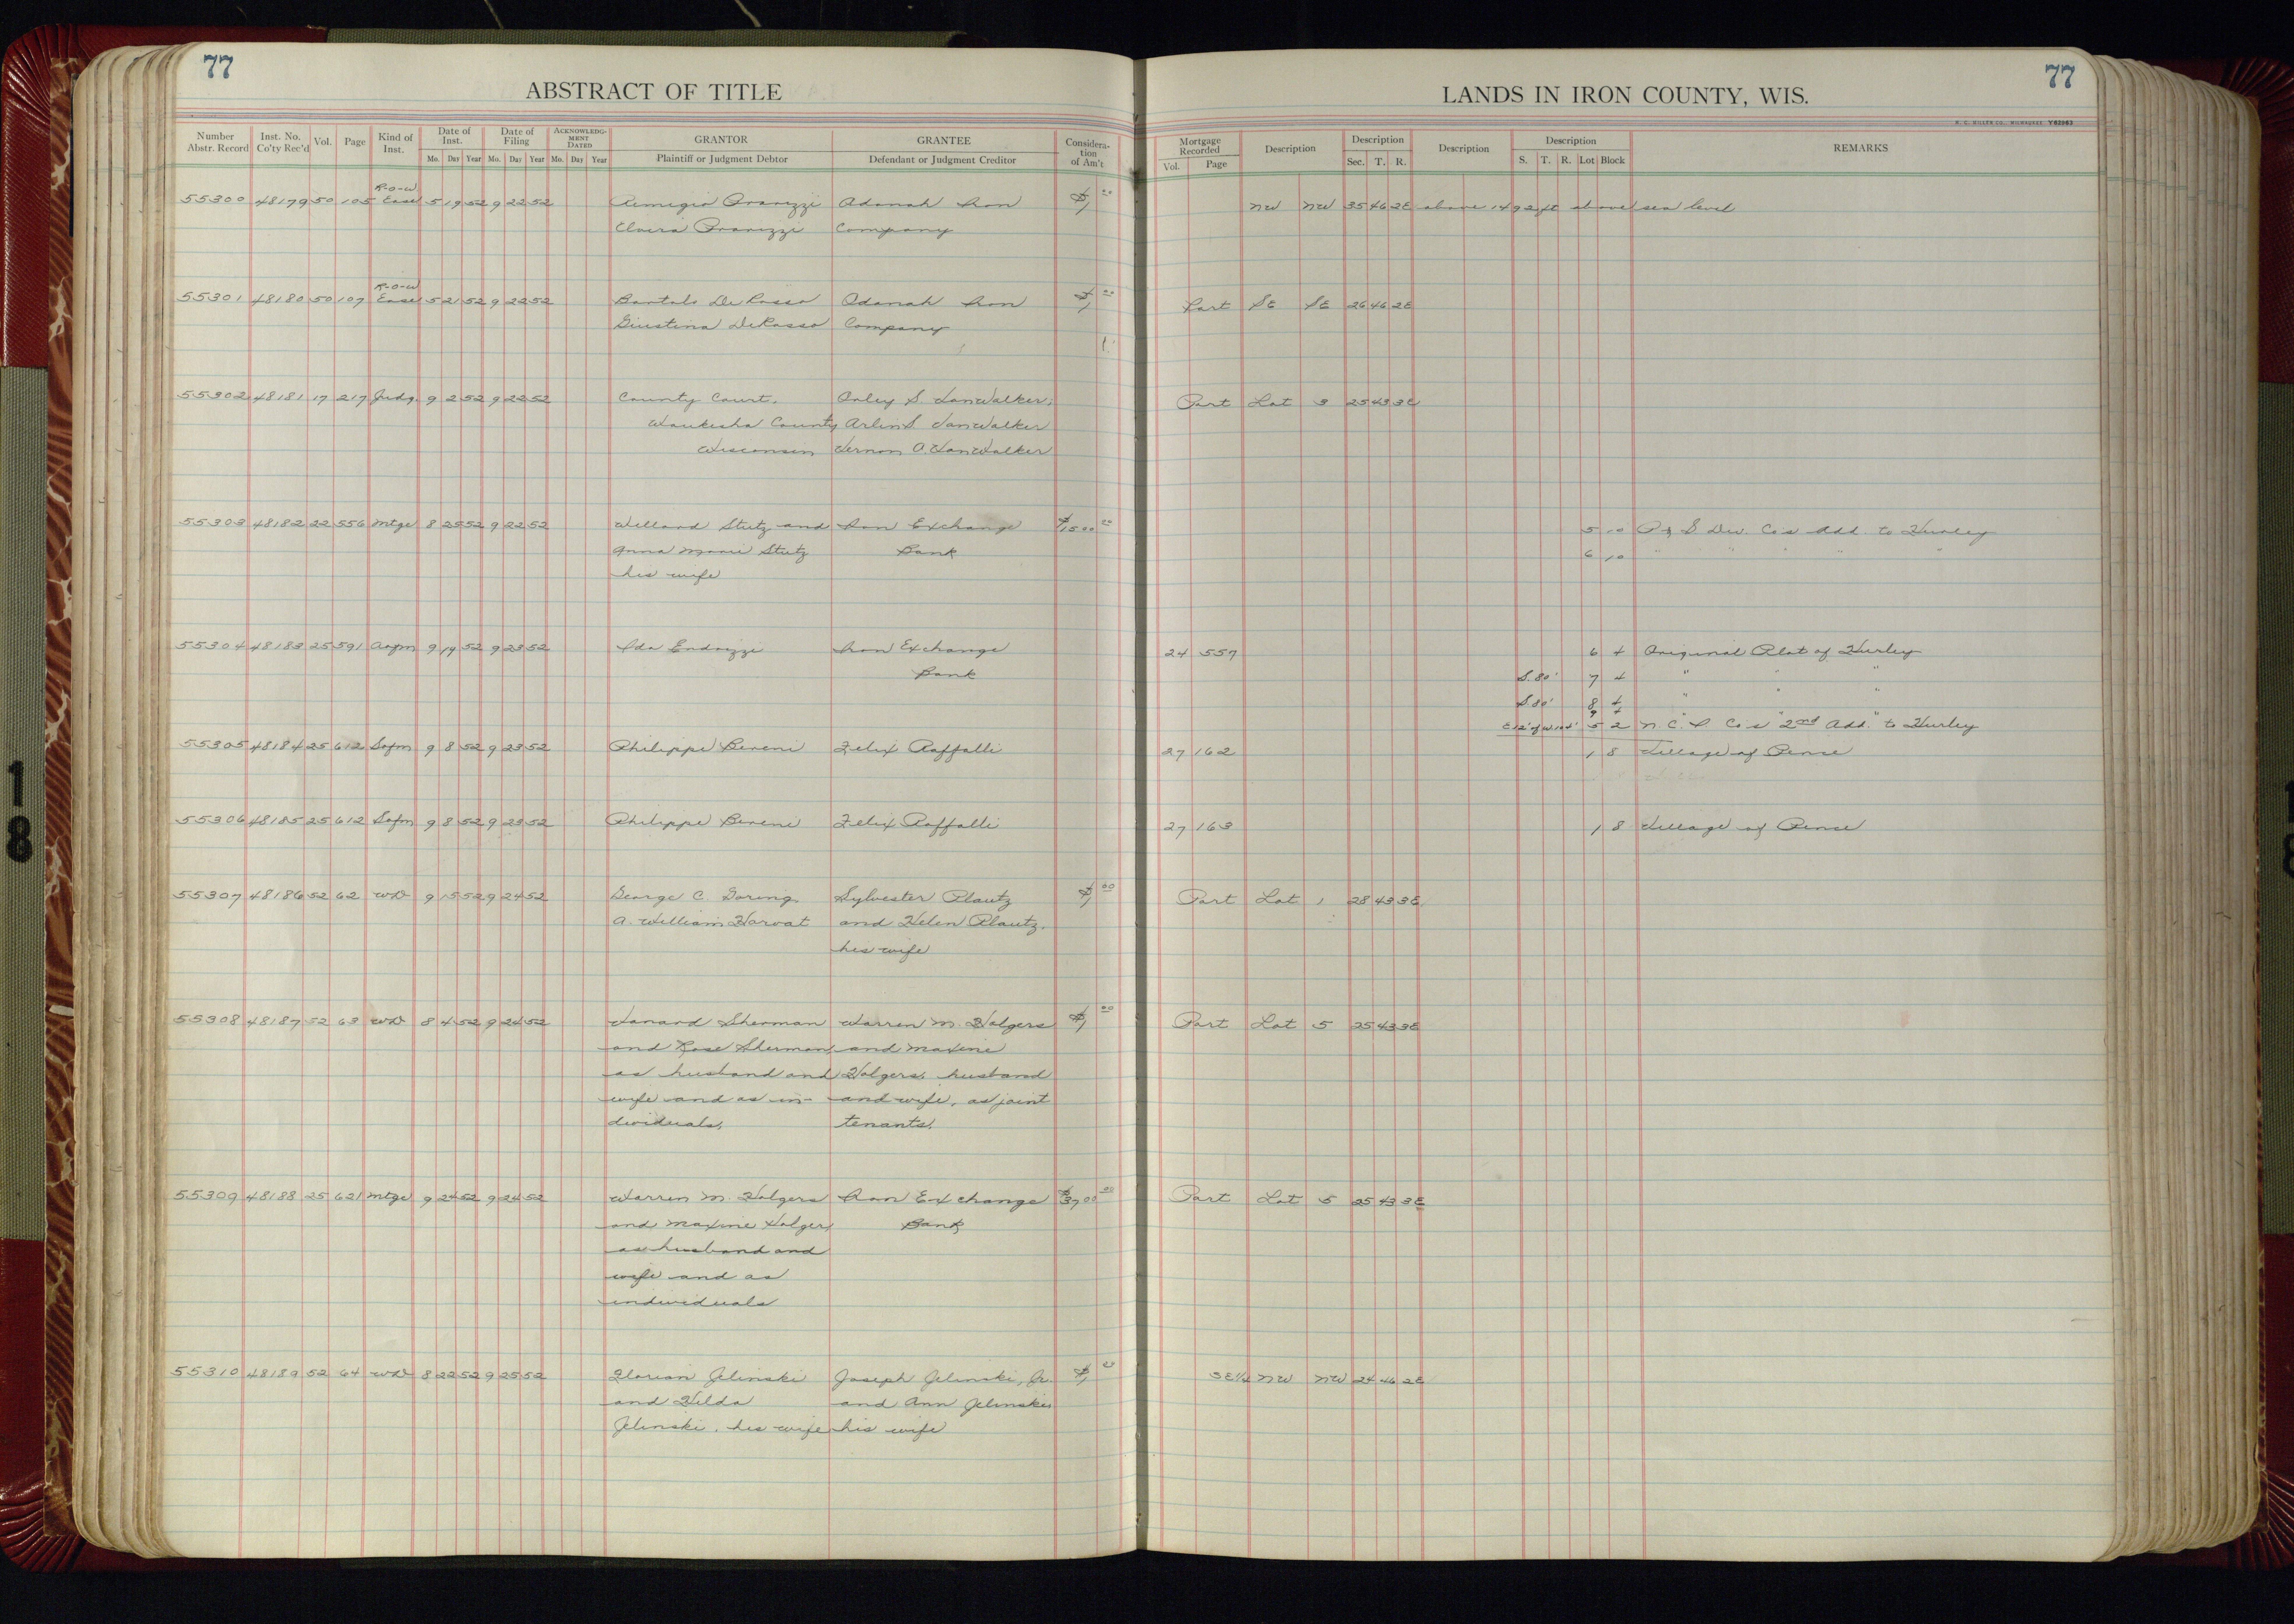 77
77
ABSTRACT OF TITLE
LANDS IN IRON COUNTY, WIS.
H. C. MILLER CO., MILWAUKEE Y62963
Number Abstr. Record | Inst. No. Co'ty Rec'd | Vol. | Page | Kind of Inst. | Date of Inst. Mo. Day Year | Date of Filing Mo. Day Year | ACKNOWLEDGMENT DATED Mo. Day Year | GRANTOR Plaintiff or Judgment Debtor | GRANTEE Defendant or Judgment Creditor | Consideration of Am't | Mortgage Recorded Vol. Page | Description | Description Sec. T. R. | Description | Description S. T. R. Lot Block | REMARKS
R-O-W
55300 48179 50 105 Ease 5 19 52 9 22 52 Remigio Adanah Iron $1 00 NW NW 35 46 2E above 1492 ft above sea level
Elvira Company
R-O-W
55301 48180 50 107 Ease 5 21 52 9 22 52 Bartalo De Rosso Odanah Iron $1 00 Part SE SE 26 46 2E
Giustina DeRosso Company
55302 48181 17 217 Judg. 9 2 52 9 22 52 County Court, Orley S VanWalker, Part Lot 3 25 43 3E
Waukesha County Arlin S. VanWalker
Wisconsin Vernon A. VanWalker
55303 48182 22 556 Mtge 8 25 52 9 22 52 Willard Stutz and Iron Exchange $1500 00 5 10 P & S Dev. Co's Add. to Hurley
Anna Marie Stutz Bank 6 10 " " " " "
his wife
55304 48183 25 591 Asgm 9 19 52 9 23 52 Ida Endrizzi Iron Exchange 24 557 6 4 Original Plat of Hurley
Bank S. 80' 7 4 " " "
S. 80' 8 4 " " "
9 4 " "
E12' of W.104' 5 2 N. C. I. Co's 2nd Add. to Hurley
55305 48184 25 612 Safm 9 8 52 9 23 52 Philippe Bereni Felix Raffalli 27 162 1 8 Village of Pence
55306 48185 25 612 Safm 9 8 52 9 23 52 Philippe Bereni Felix Raffalli 27 163 1 8 Village of Pence
55307 48186 52 62 WD 9 15 52 9 24 52 George C. Goring Sylvester Plautz $1 00 Part Lot 1 28 43 3E
A. William Horvat and Helen Plautz,
his wife
55308 48187 52 63 WD 8 4 52 9 24 52 Vanard Sherman Warren M. Holgers $1 00 Part Lot 5 25 43 3E
and Rose Sherman, and Maxine
as husband and Holgers, husband
wife and as in- and wife, as joint
dividuals, tenants,
55309 48188 25 621 Mtge 9 24 52 9 24 52 Warren M. Holgers Iron Exchange $3700 00 Part Lot 5 25 43 3E
and Maxine Holgers, Bank
as husband and
wife and as
individuals
55310 48189 52 64 WD 8 22 52 9 25 52 Florian Jelinski Joseph Jelinski, Jr. $1 00 SE1/4 NW NW 24 46 2E
and Hilda and Ann Jelinski
Jelinski, his wife his wife
18